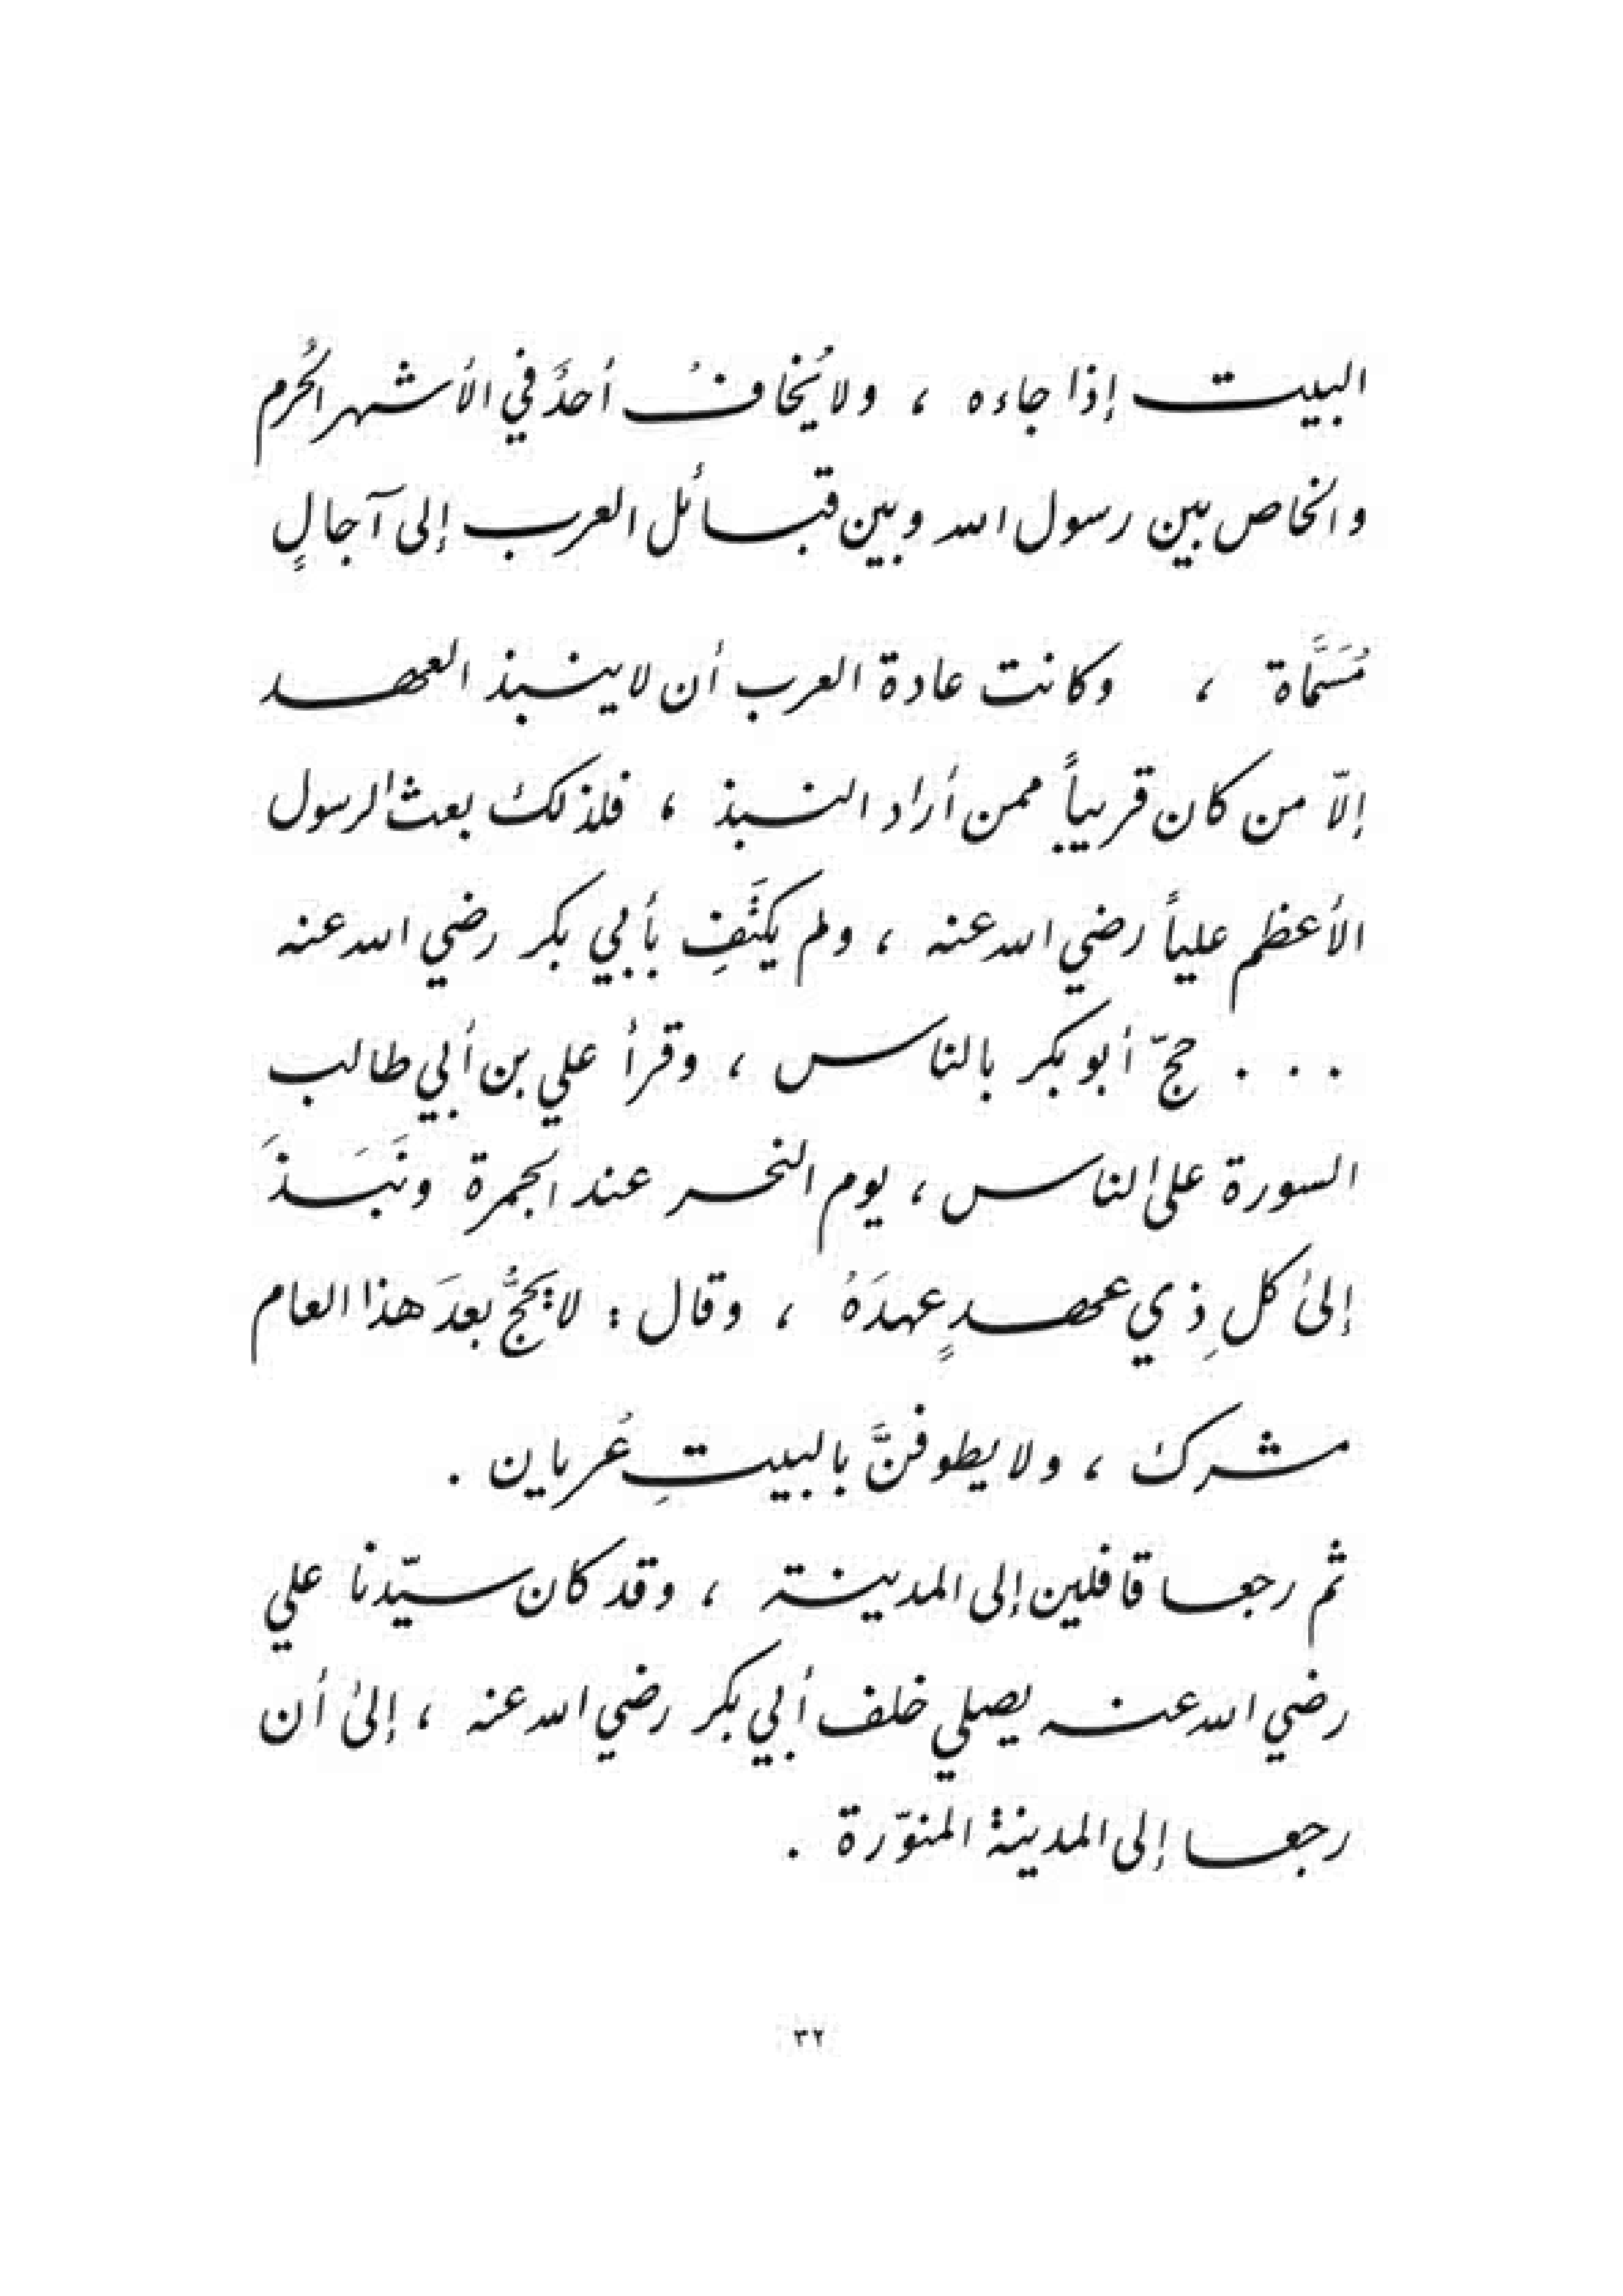 البيت إذا جاءه ، ولا يُخافُ أحدٌ في الأشهر الحُرم
والخاص بين رسول الله وبين قبائل العرب إلى آجالٍ
مُسَمَّاة ، وكانت عادة العرب أن لا ينبذ العهد
إلّا من كان قريباً ممن أراد النبذ ، فلذلك بعث الرسول
الأعظم علياً رضي الله عنه ، ولم يكتَفِ بأبي بكر رضي الله عنه
. . . حجّ أبو بكر بالناس ، وقرأ علي بن أبي طالب
السورة على الناس ، يوم النحر عند الجمرة ونَبَذَ
إلى كلِ ذي عهدٍ عهدَهُ ، وقال : لا يحجُّ بعدَ هذا العام
مشرك ، ولا يطوفنَّ بالبيتِ عُريان .
ثم رجعا قافلين إلى المدينة ، وقد كان سيّدنا علي
رضي الله عنه يصلي خلف أبي بكر رضي الله عنه ، إلى أن
رجعا إلى المدينة المنوّرة .
٣٢